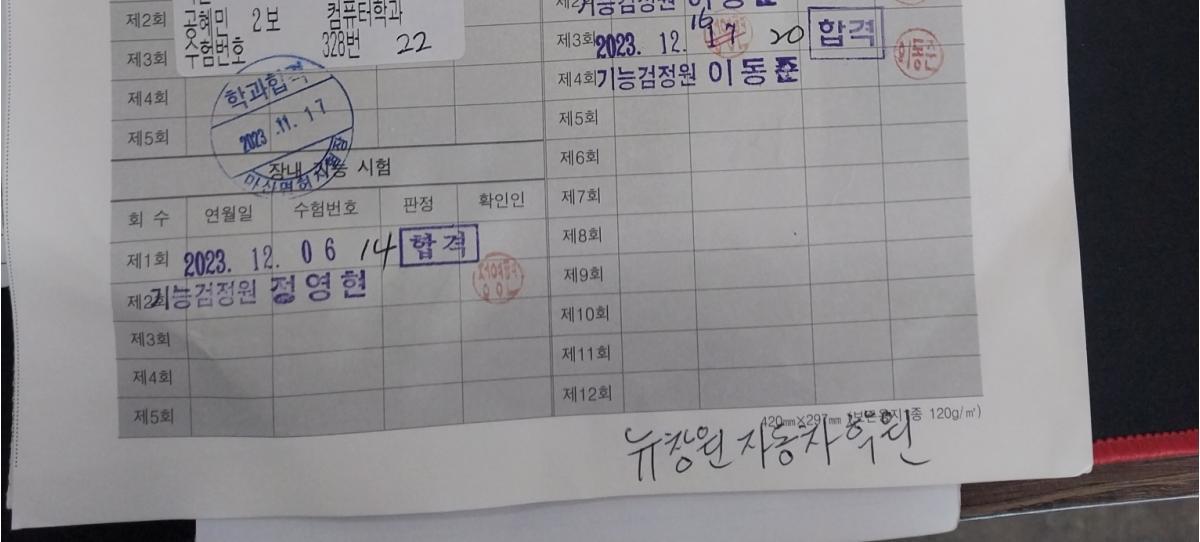 제2회 공혜민 2보 컴퓨터학과
수험번호 328번 22
제3회
제4회
제5회
학과합격
2023.11.17
장내 기능 시험
회 수 연월일 수험번호 판정 확인인
제1회 2023. 12. 06 14 합격
제2회 기능검정원 정영현
제3회
제4회
제5회
기능검정원 이동준
16
제3회 2023. 12. 17 20 합격
제4회 기능검정원 이동준
제5회
제6회
제7회
제8회
제9회
제10회
제11회
제12회
420㎜×297㎜ 120g/㎡)
뉴창원자동차학원